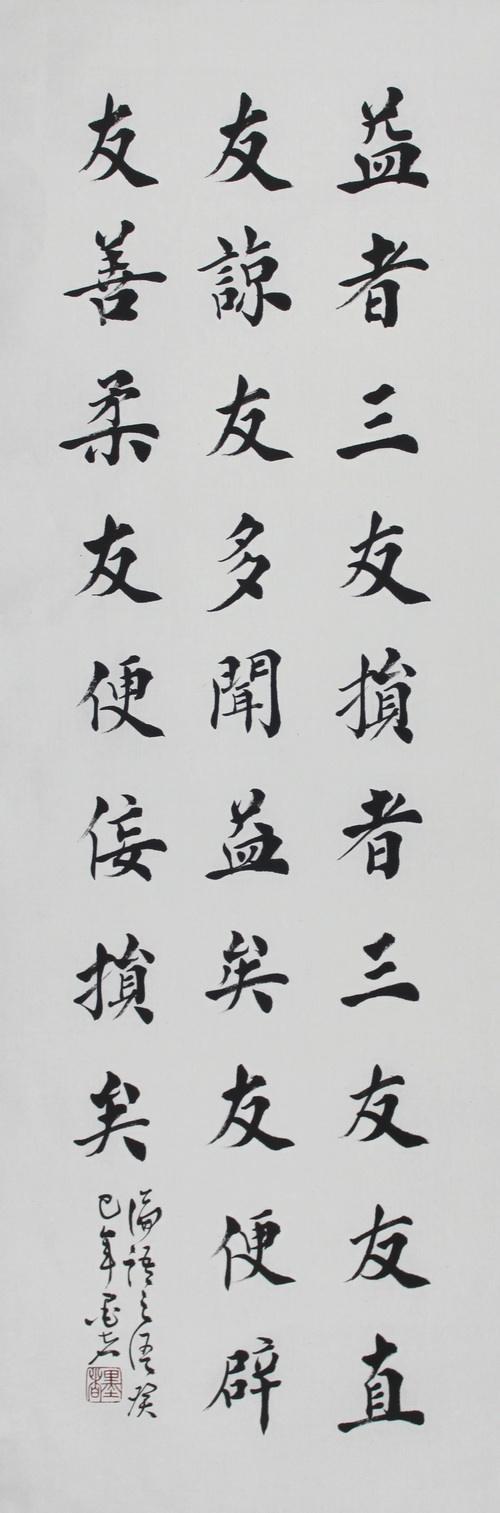 益者三友損者三友友直
友諒友多聞益矣友便辟
友善柔友便佞損矣
論語之語癸
巳年